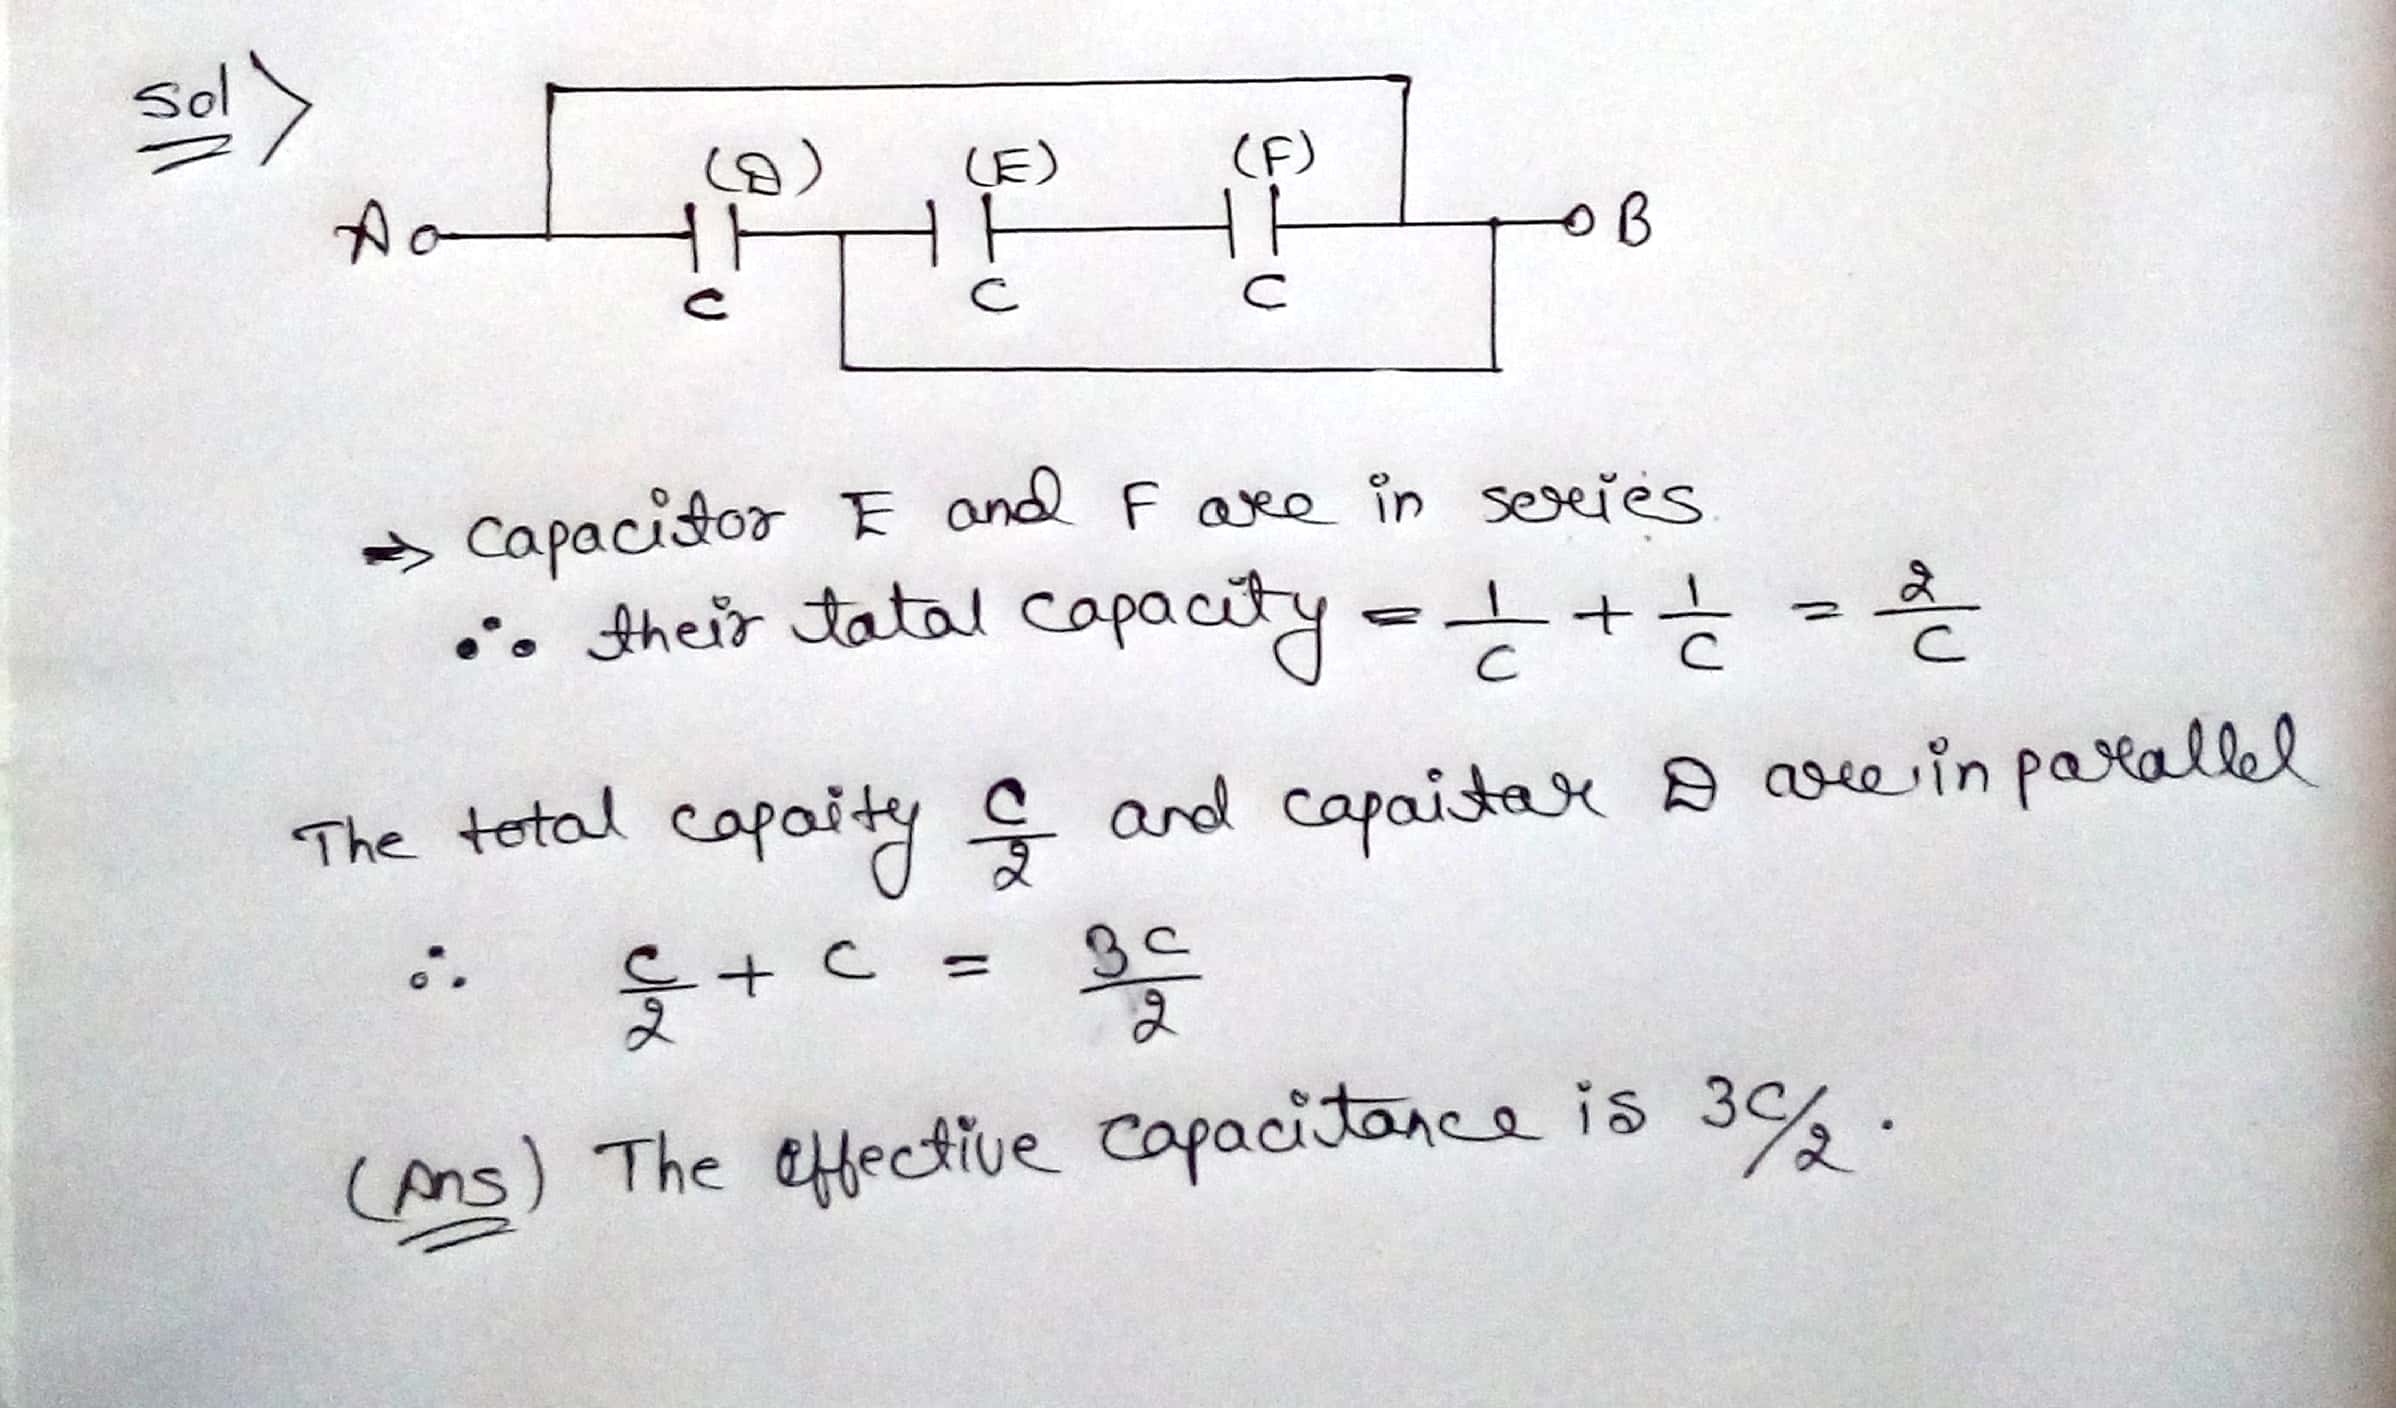 Sol>
(D) (E) (F)
A B
C C C
⇒ Capacitor E and F are in series.
∴ their tatal capacity = 1/C + 1/C = 2/C
The total capaity C/2 and capaitar D are in parallel
∴ C/2 + C = 3C/2
(Ans) The effective capacitance is 3C/2.